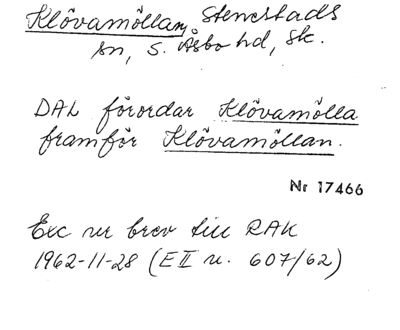 Klövamöllan, Stenestads
sn, S. Åsbo hd, Sk.
DAL förordar Klövamölla
framför Klövamöllan.
Nr 17466
Exc ur brev till RAK
1962-11-28 (E II u. 607/62)